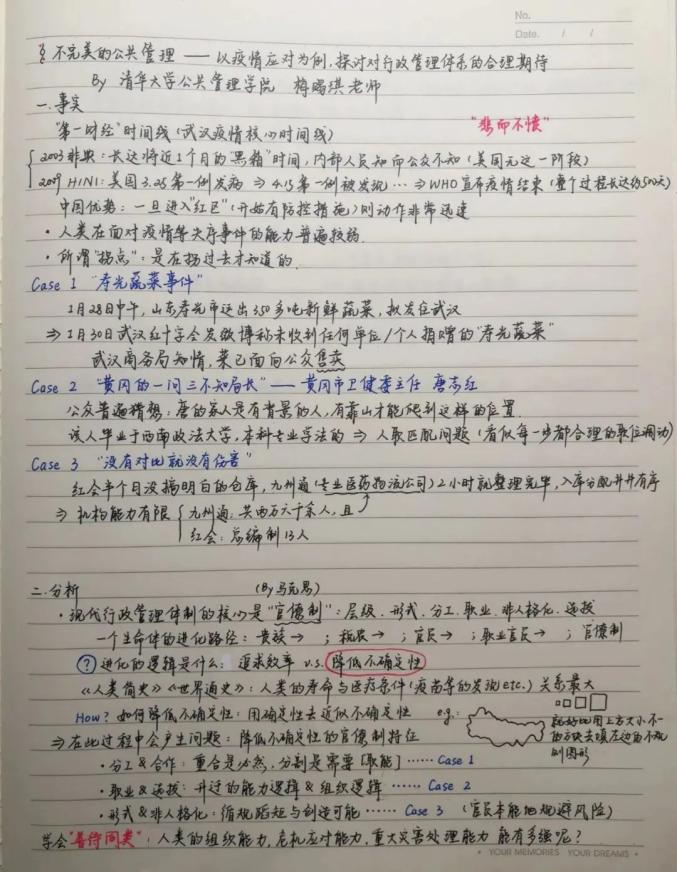 No.
Date. / /
§ 不完美的公共管理 —— 以疫情应对为例,探讨对行政管理体系的合理期待
By 清华大学公共管理学院 梅赐琪老师
一.事实
"第一财经"时间线(武汉疫情核心时间线) "悲而不愤"
2003非典:长达将近1个月的"黑箱"时间,内部人员知而公众不知(美国无这一阶段)
2009 H1N1:美国3.28第一例发病 ⇒ 4.15第一例被发现 … ⇒ WHO宣布疫情结束(整个过程长达约500天)
中国优势:一旦进入"红区"(开始有防控措施)则动作非常迅速
· 人类在面对疫情等失序事件的能力普遍较弱.
· 所谓"拐点":是在拐过去才知道的.
Case 1 "寿光蔬菜事件"
1月28日中午,山东寿光市运出350多吨新鲜蔬菜,拟发往武汉
⇒ 1月30日武汉红十字会发微博称未收到任何单位/个人捐赠的"寿光蔬菜"
武汉商务局知情,菜已面向公众售卖
Case 2 "黄冈的一问三不知局长" —— 黄冈市卫健委主任 唐志红
公众普遍猜想:唐的家人是有背景的人,有靠山才能爬到这样的位置.
该人毕业于西南政法大学,本科专业学法的 ⇒ 人职匹配问题(看似每一步都合理的职位调动)
Case 3 "没有对比就没有伤害"
红会半个月没搞明白的仓库,九州通(专业医药物流公司)2小时就整理完毕,入库分配井井有序
⇒ 机构能力有限 九州通:共两万六千余人,且
红会:总编制13人
二.分析 (By马克思)
· 现代行政管理体制的核心是"官僚制":层级.形式.分工.职业.非人格化.选拔
一个生命体的进化路径:贵族→ ;税农→ ;官民→ ;职业官民→ ;官僚制
? 进化的逻辑是什么:追求效率 v.s. 降低不确定性
《人类简史》《世界通史》:人类的寿命与医疗条件(疫苗等的发现etc.)关系最大
How? 如何降低不确定性:用确定性去近似不确定性 e.g.:
就好比用上方大小不一的方块去填左边的不规则图形
⇒ 在此过程中会产生问题:降低不确定性的官僚制特征
· 分工&合作:重合是必然,分割是需要【职能】…… Case 1
· 职业&选拔:升迁的能力逻辑&组织逻辑 …… Case 2
· 形式&非人格化:循规蹈矩与创造可能 …… Case 3 (官民本能地规避风险)
学会"善待同类":人类的组织能力,危机应对能力,重大灾害处理能力 能有多强呢?
YOUR MEMORIES YOUR DREAMS